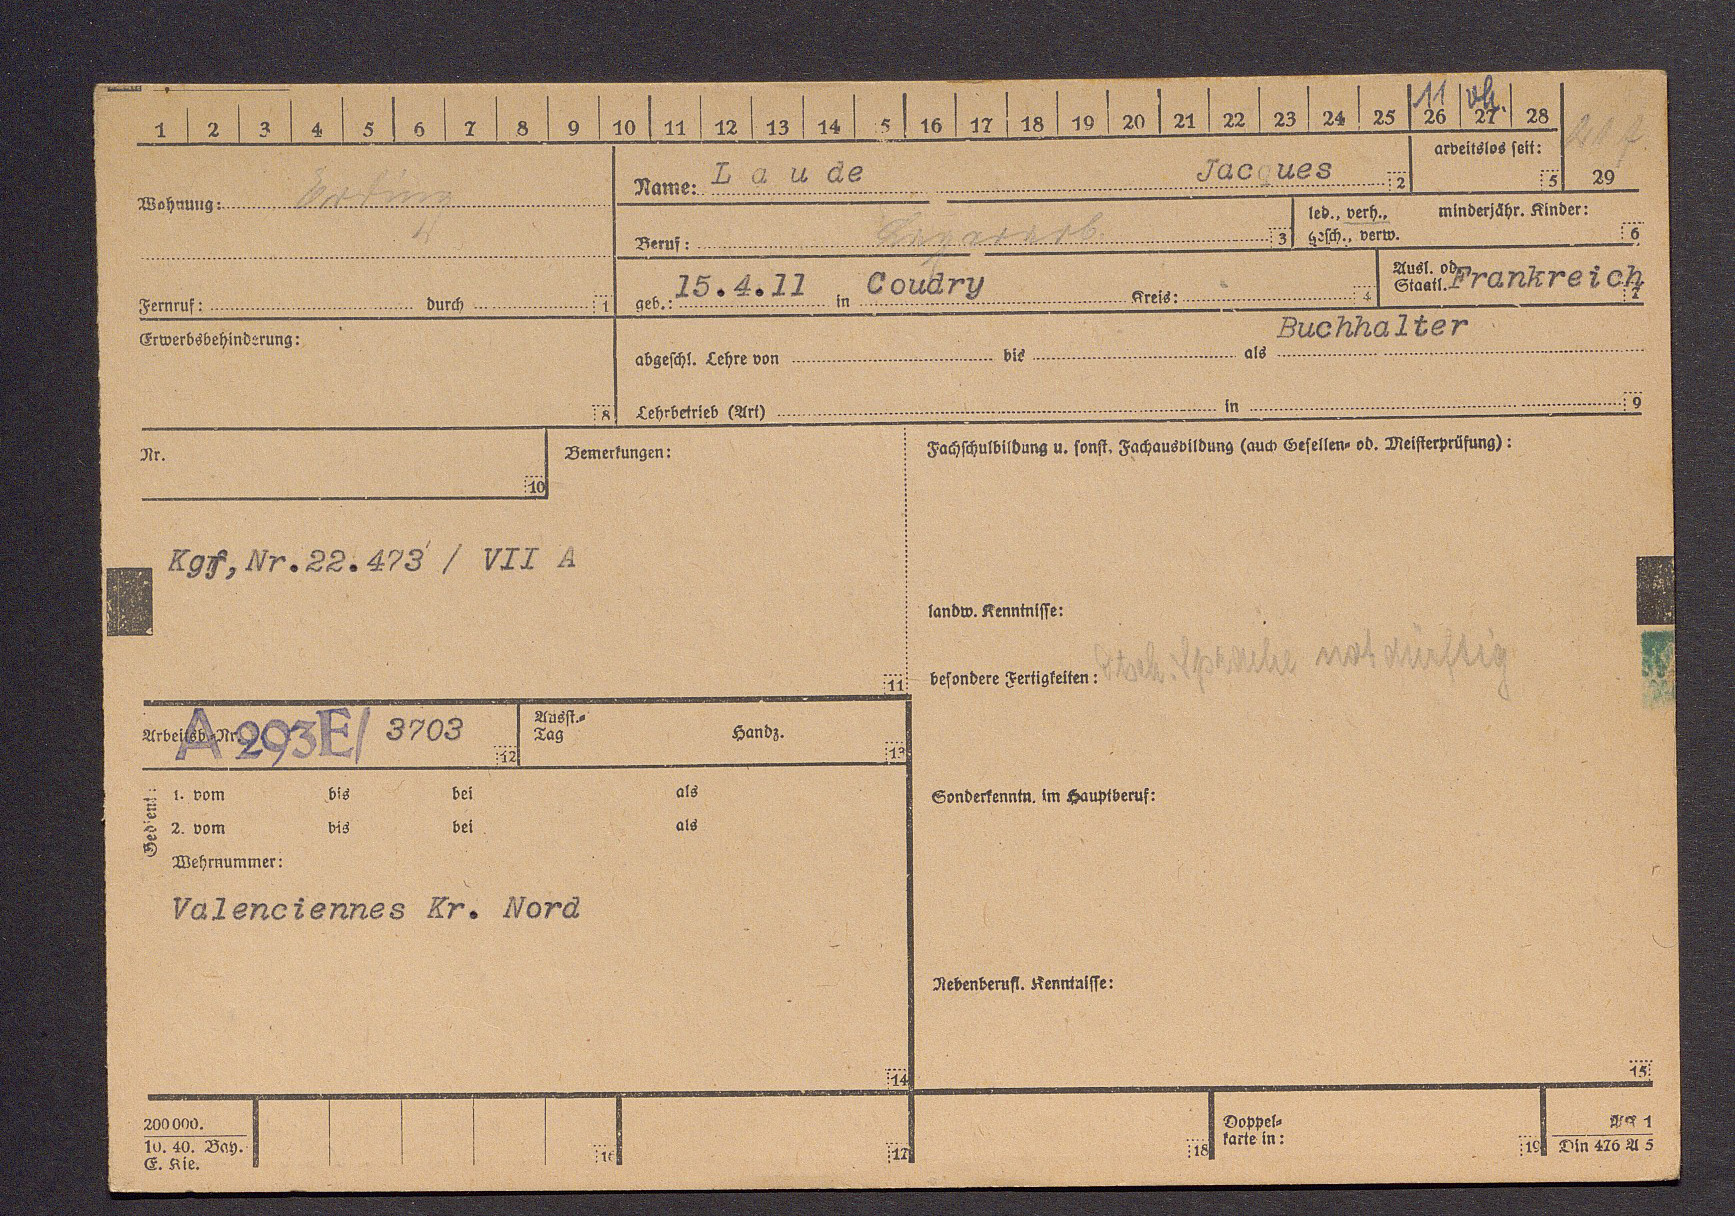 1 2 3 4 5 6 7 8 9 10 11 12 13 14 5 16 17 18 19 20 21 22 23 24 25 26 27 28
11 vh.
arbeitslos seit:
5 29
Wohnung: Erting
Name: Laude Jacques 2
Beruf: 3
led., verh., minderjähr. Kinder:
gesch., verw. 6
Fernruf: durch 1
geb.: 15.4.11 in Coudry Kreis: 4
Ausl. od. Frankreich
Staatl. 7
Erwerbsbehinderung:
8
Buchhalter
abgeschl. Lehre von bis als
Lehrbetrieb (Art) in 9
Nr.
10
Bemerkungen:
Kgf, Nr. 22.473 / VII A
11
Fachschulbildung u. sonst. Fachausbildung (auch Gesellen- od. Meisterprüfung):
landw. Kenntnisse:
besondere Fertigkeiten: dtsch. Sprache notdürftig
Arbeitsb.-Nr. A 293E/ 3703 12
Ausst.-
Tag Handz.
13
Gedient:
1. vom bis bei als
2. vom bis bei als
Wehrnummer:
Valenciennes Kr. Nord
14
Sonderkenntn. im Hauptberuf:
Nebenberufl. Kenntnisse:
15
200000.
10. 40. Bay.
E. Kie.
16
17
18
Doppel-
karte in:
19
1
Din 476 A 5